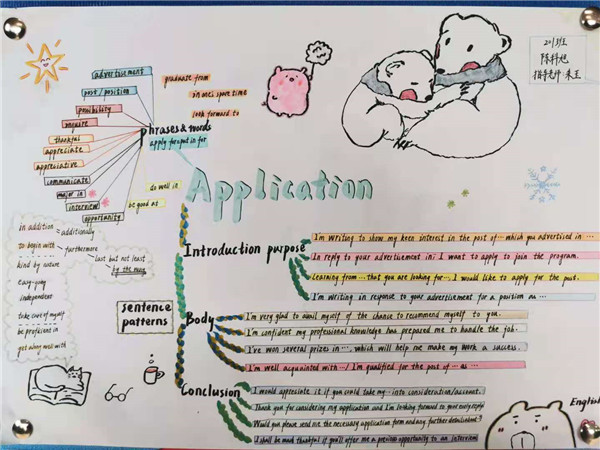 2013班
指导老师:朱玉
advertisement
post/position
possibility
require
thankful
appreciate
appreciative
communicate
major in
interview
opportunity
graduate from
in one's spare time
look forward to
phrases & words
apply for = put in for
do well in
be good at
Application
in addition = additionally
to begin with
furthermore
last but not least
kind by nature
by the way
easy-going
independent
take care of myself
be proficient in
get along well with
sentence
patterns
Introduction purpose
I'm writing to show my keen interest in the post of ··· which you advertised in ···
In reply to your advertisement in: I want to apply to join the program.
Learning from ··· that you are looking for ··· I would like to apply for the post.
I'm writing in response to your advertisement for a position as ···
Body
I'm very glad to avail myself of the chance to recommend myself to you.
I'm confident my professional knowledge has prepared me to handle the job.
I've won several prizes in ···, which will help me make my work a success.
I'm well acquainted with ···/ I'm qualified for the post of ··· as ···
Conclusion
I would appreciate it if you could take my ··· into consideration/account.
Thank you for considering my application and I'm looking forward to your early reply!
Would you please send me the necessary application form and any further details
I shall be much thankful if you'll offer me a previous opportunity to an interview
English